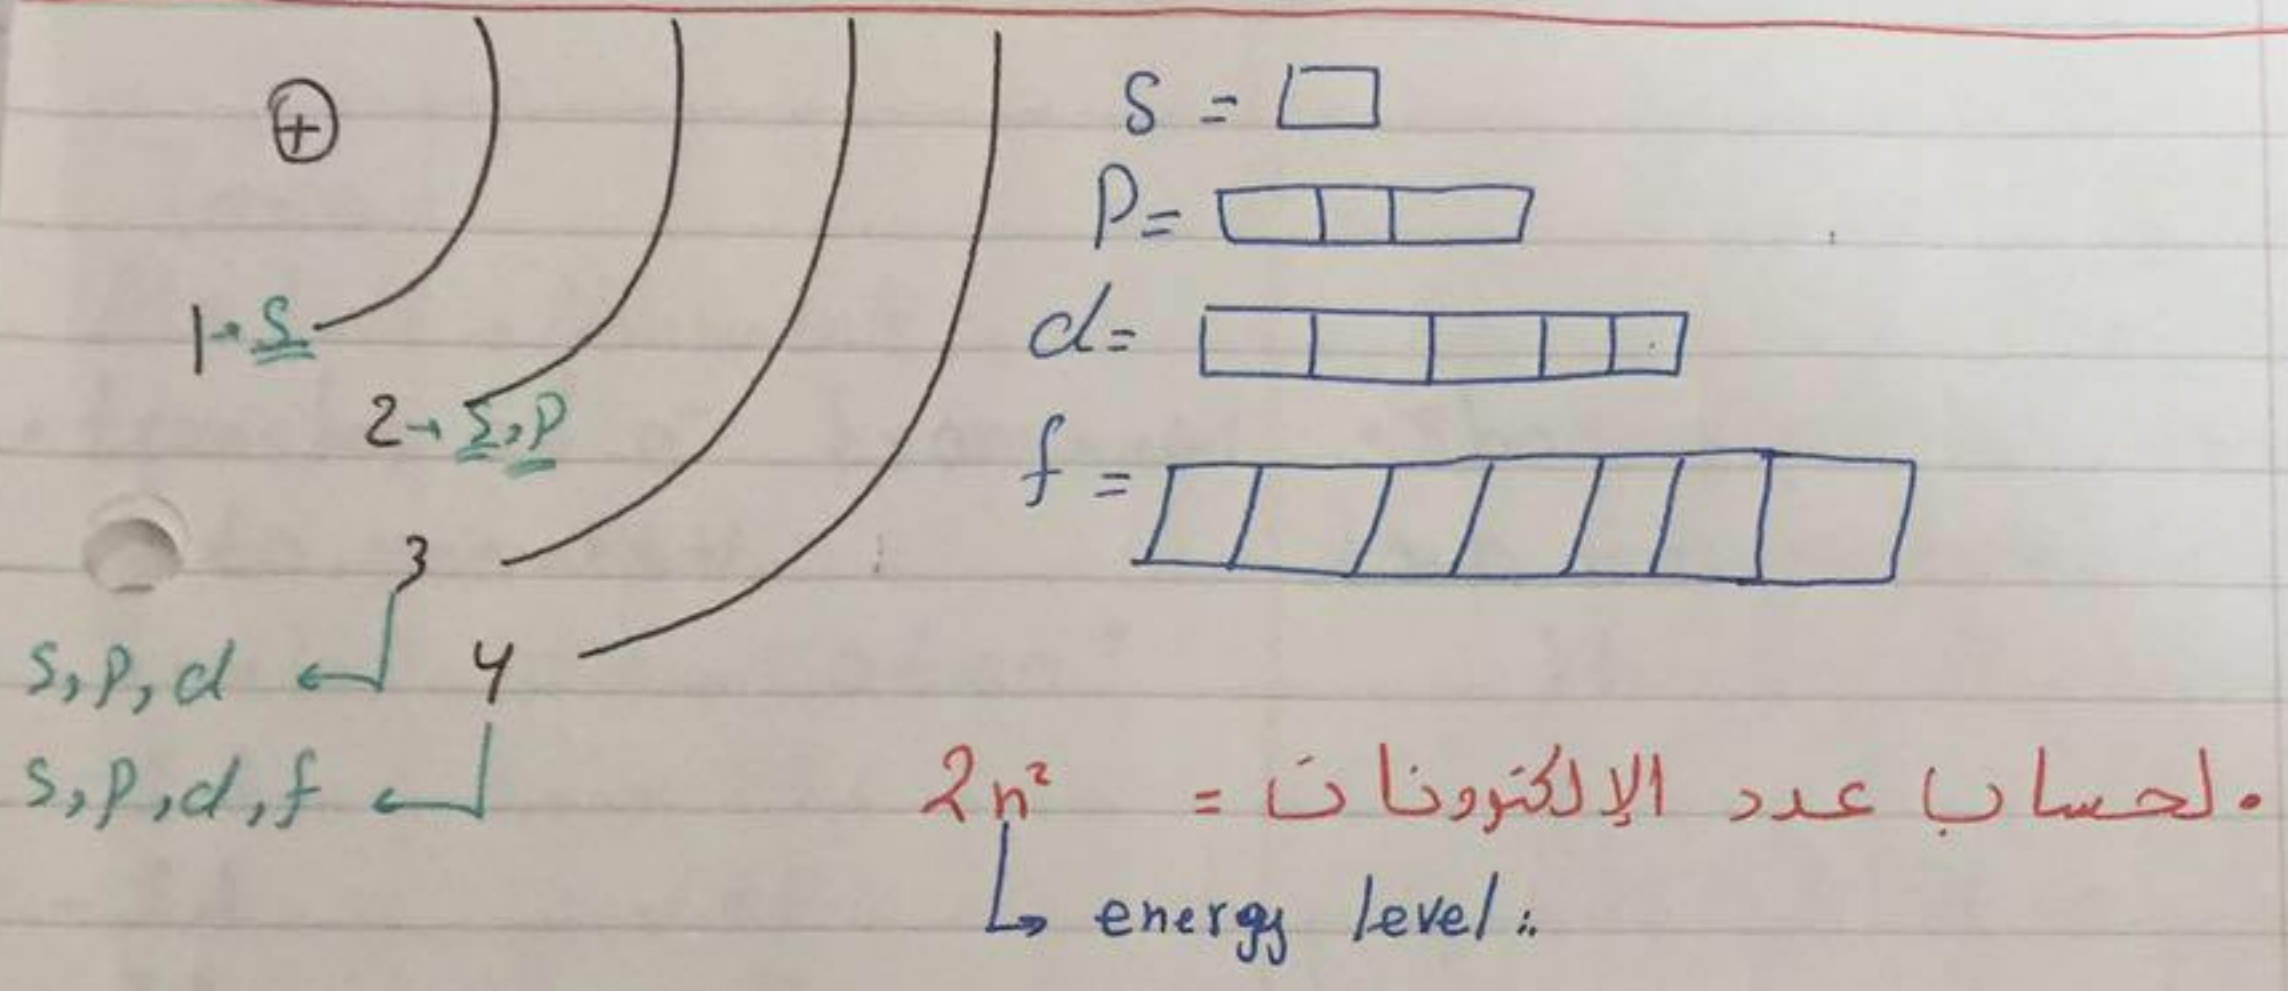 +
1→ s
2→ s,p
3
s,p,d
4
s,p,d,f
s =
p=
d=
f =
• لحساب عدد الإلكترونات = 2n²
energy level :.